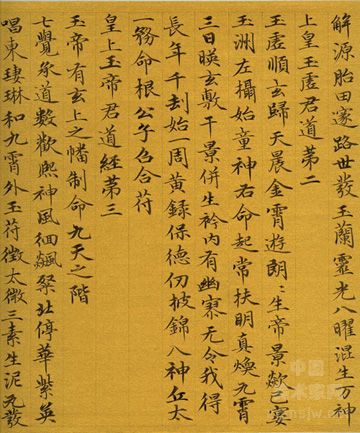 解源胎田邃路世發玉蘭靈光八曜混生万神
上皇玉虛君道第二
玉虛順玄歸天晨金霄遊朗〻生帝景歘已宴
玉洲左攝始童神右命起常扶明真煥九霄
三日暎玄敷千景併生衿內有幽寥无令我得
長年千劫始一周黃録保德仞披錦八神丘太
一務命根公午合苻
皇上玉帝君道經苐三
玉帝有玄上之幡制命九天之階
七覺承道數歡熙神風徊飆粲北停華紫英
唱東琳和九霄外玉苻徵太微三素生泥丸發
中国
术家网